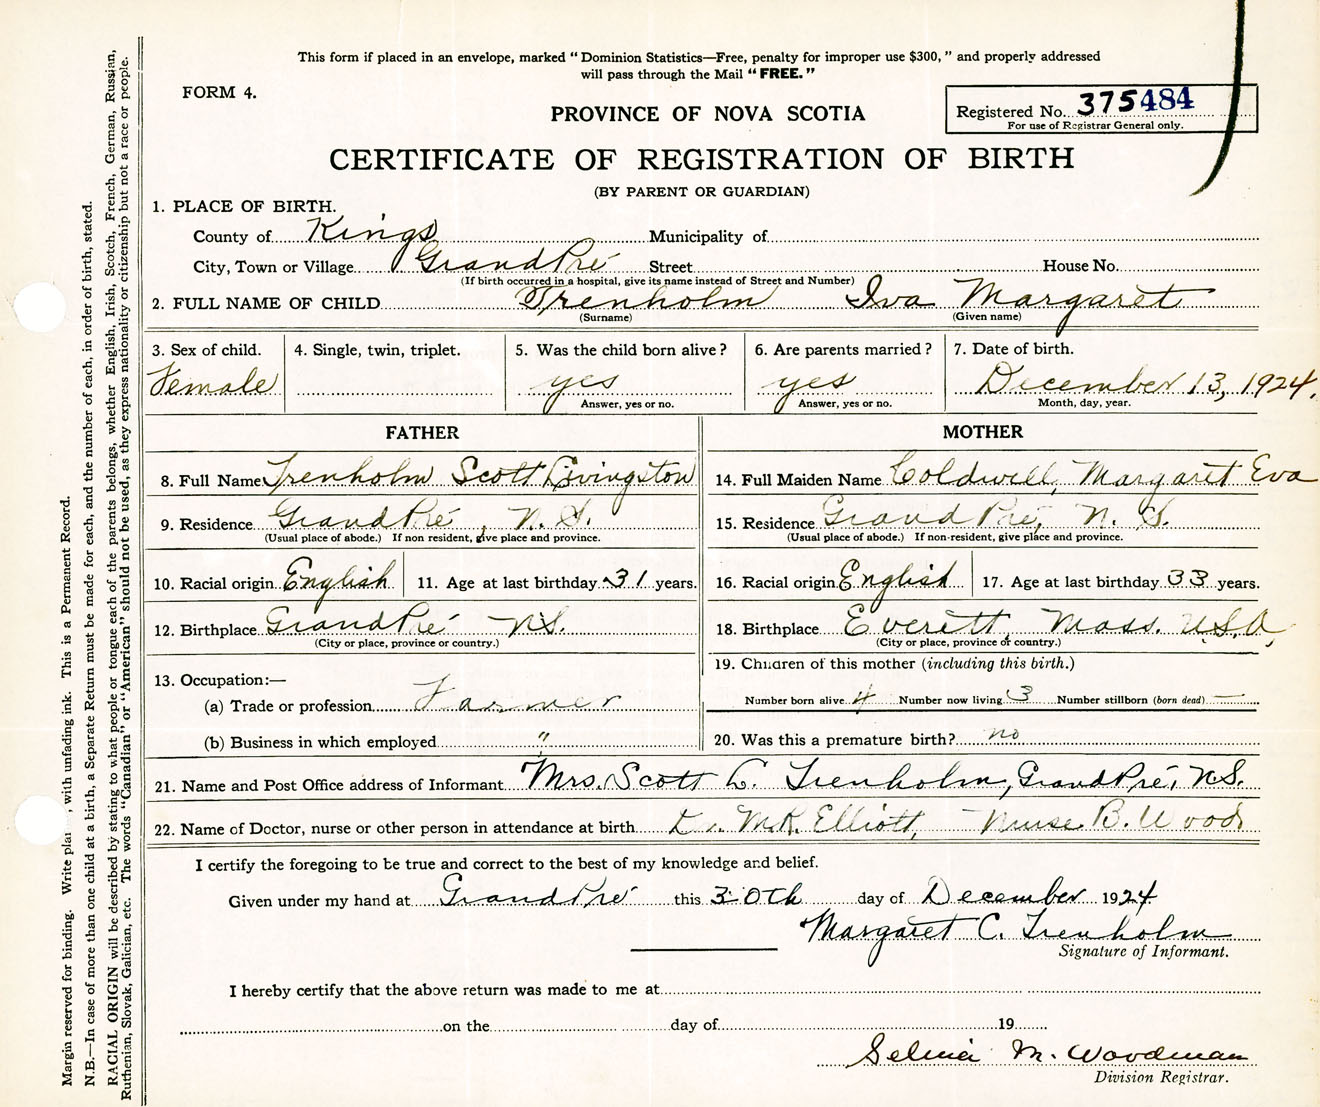 This form if placed in an envelope, marked "Dominion Statistics—Free, penalty for improper use $300," and properly addressed
will pass through the Mail "FREE."
FORM 4.
PROVINCE OF NOVA SCOTIA
Registered No. 375484
For use of Registrar General only.
CERTIFICATE OF REGISTRATION OF BIRTH
(BY PARENT OR GUARDIAN)
1. PLACE OF BIRTH.
County of Kings Municipality of
City, Town or Village Grand Pré Street House No.
(If birth occurred in a hospital, give its name instead of Street and Number)
2. FULL NAME OF CHILD Trenholm Iva Margaret
(Surname) (Given name)
3. Sex of child. 4. Single, twin, triplet. 5. Was the child born alive? 6. Are parents married? 7. Date of birth.
Female yes yes December 13, 1924.
Answer, yes or no. Answer, yes or no. Month, day, year.
FATHER MOTHER
8. Full Name Trenholm Scott Livingston 14. Full Maiden Name Coldwell, Margaret Eva
9. Residence Grand Pré, N.S. 15. Residence Grand Pré, N.S.
(Usual place of abode.) If non resident, give place and province. (Usual place of abode.) If non-resident, give place and province.
10. Racial origin English 11. Age at last birthday 31 years. 16. Racial origin English 17. Age at last birthday 33 years.
12. Birthplace Grand Pré N.S. 18. Birthplace Everett, Mass. U.S.A,
(City or place, province or country.) (City or place, province or country.)
13. Occupation:— 19. Children of this mother (including this birth.)
(a) Trade or profession Farmer Number born alive 4 Number now living 3 Number stillborn (born dead) —
(b) Business in which employed " 20. Was this a premature birth? no
21. Name and Post Office address of Informant Mrs. Scott L. Trenholm, Grand Pré, N.S.
22. Name of Doctor, nurse or other person in attendance at birth Dr. M.R. Elliott, Nurse B. Wood
I certify the foregoing to be true and correct to the best of my knowledge and belief.
Given under my hand at Grand Pré this 30th day of December 1924
Margaret C. Trenholm
Signature of Informant.
I hereby certify that the above return was made to me at
on the day of 19
Selina M. Woodman
Division Registrar.
Margin reserved for binding. Write , with unfading ink. This is a Permanent Record.
N.B.—In case of more than one child at a birth, a Separate Return must be made for each, and the number of each, in order of birth, stated.
RACIAL ORIGIN will be described by stating to what people or tongue each of the parents belongs, whether English, Irish, Scotch, French, German, Russian,
Ruthenian, Slovak, Galician, etc. The words "Canadian" or "American" should not be used, as they express nationality or citizenship but not a race or people.